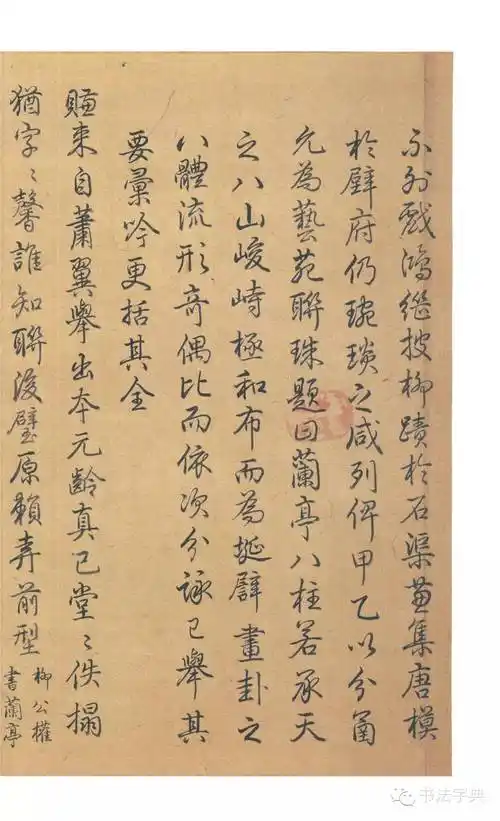 不列戲鴻繼披柳蹟於石渠薈集唐模
於壁府仍琬琰之咸列俾甲乙以分冊
允為藝苑聯珠題曰蘭亭八柱若承天
之八山峻峙極和布而為埏譬畫卦之
八體流形奇偶比而依次分詠已舉其
要彙吟更括其全
賺來自蕭翼舉出本元齡真已堂〻佚搨
猶字〻馨誰知聯後璧原賴弆前型
柳公權
書蘭亭
书法字典